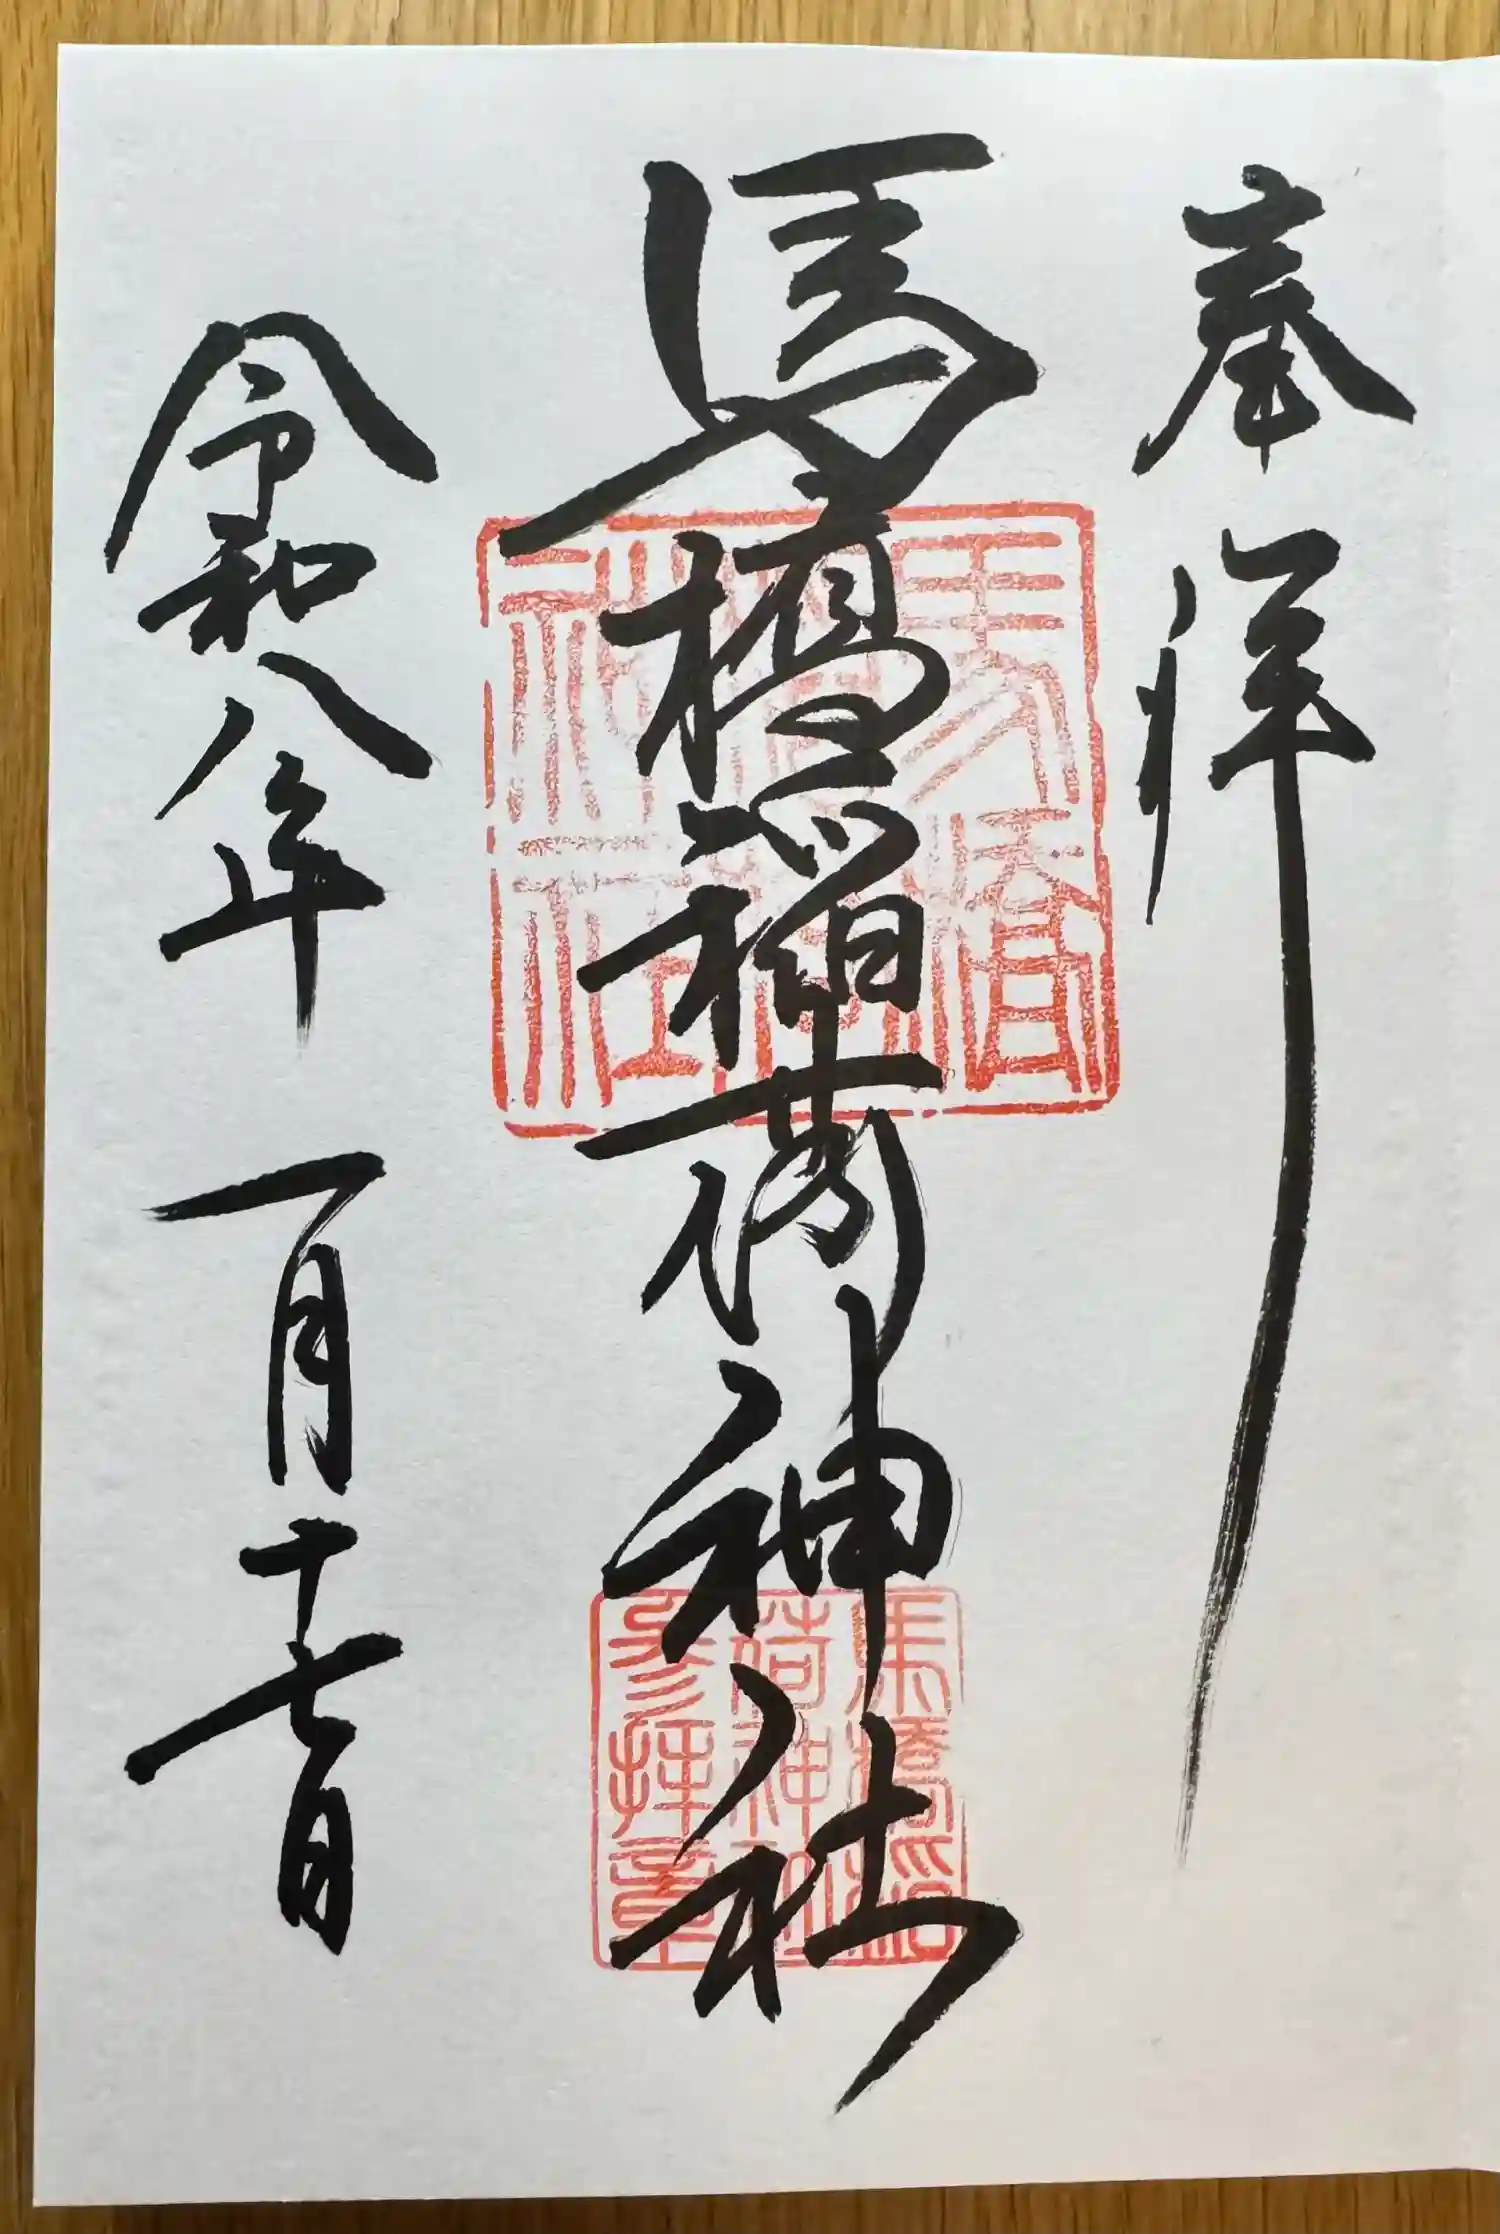 奉拝
馬橋稲荷神社
令和八年 一月十七日
馬橋
稲荷
神社
馬橋稲
荷神社
参拝章